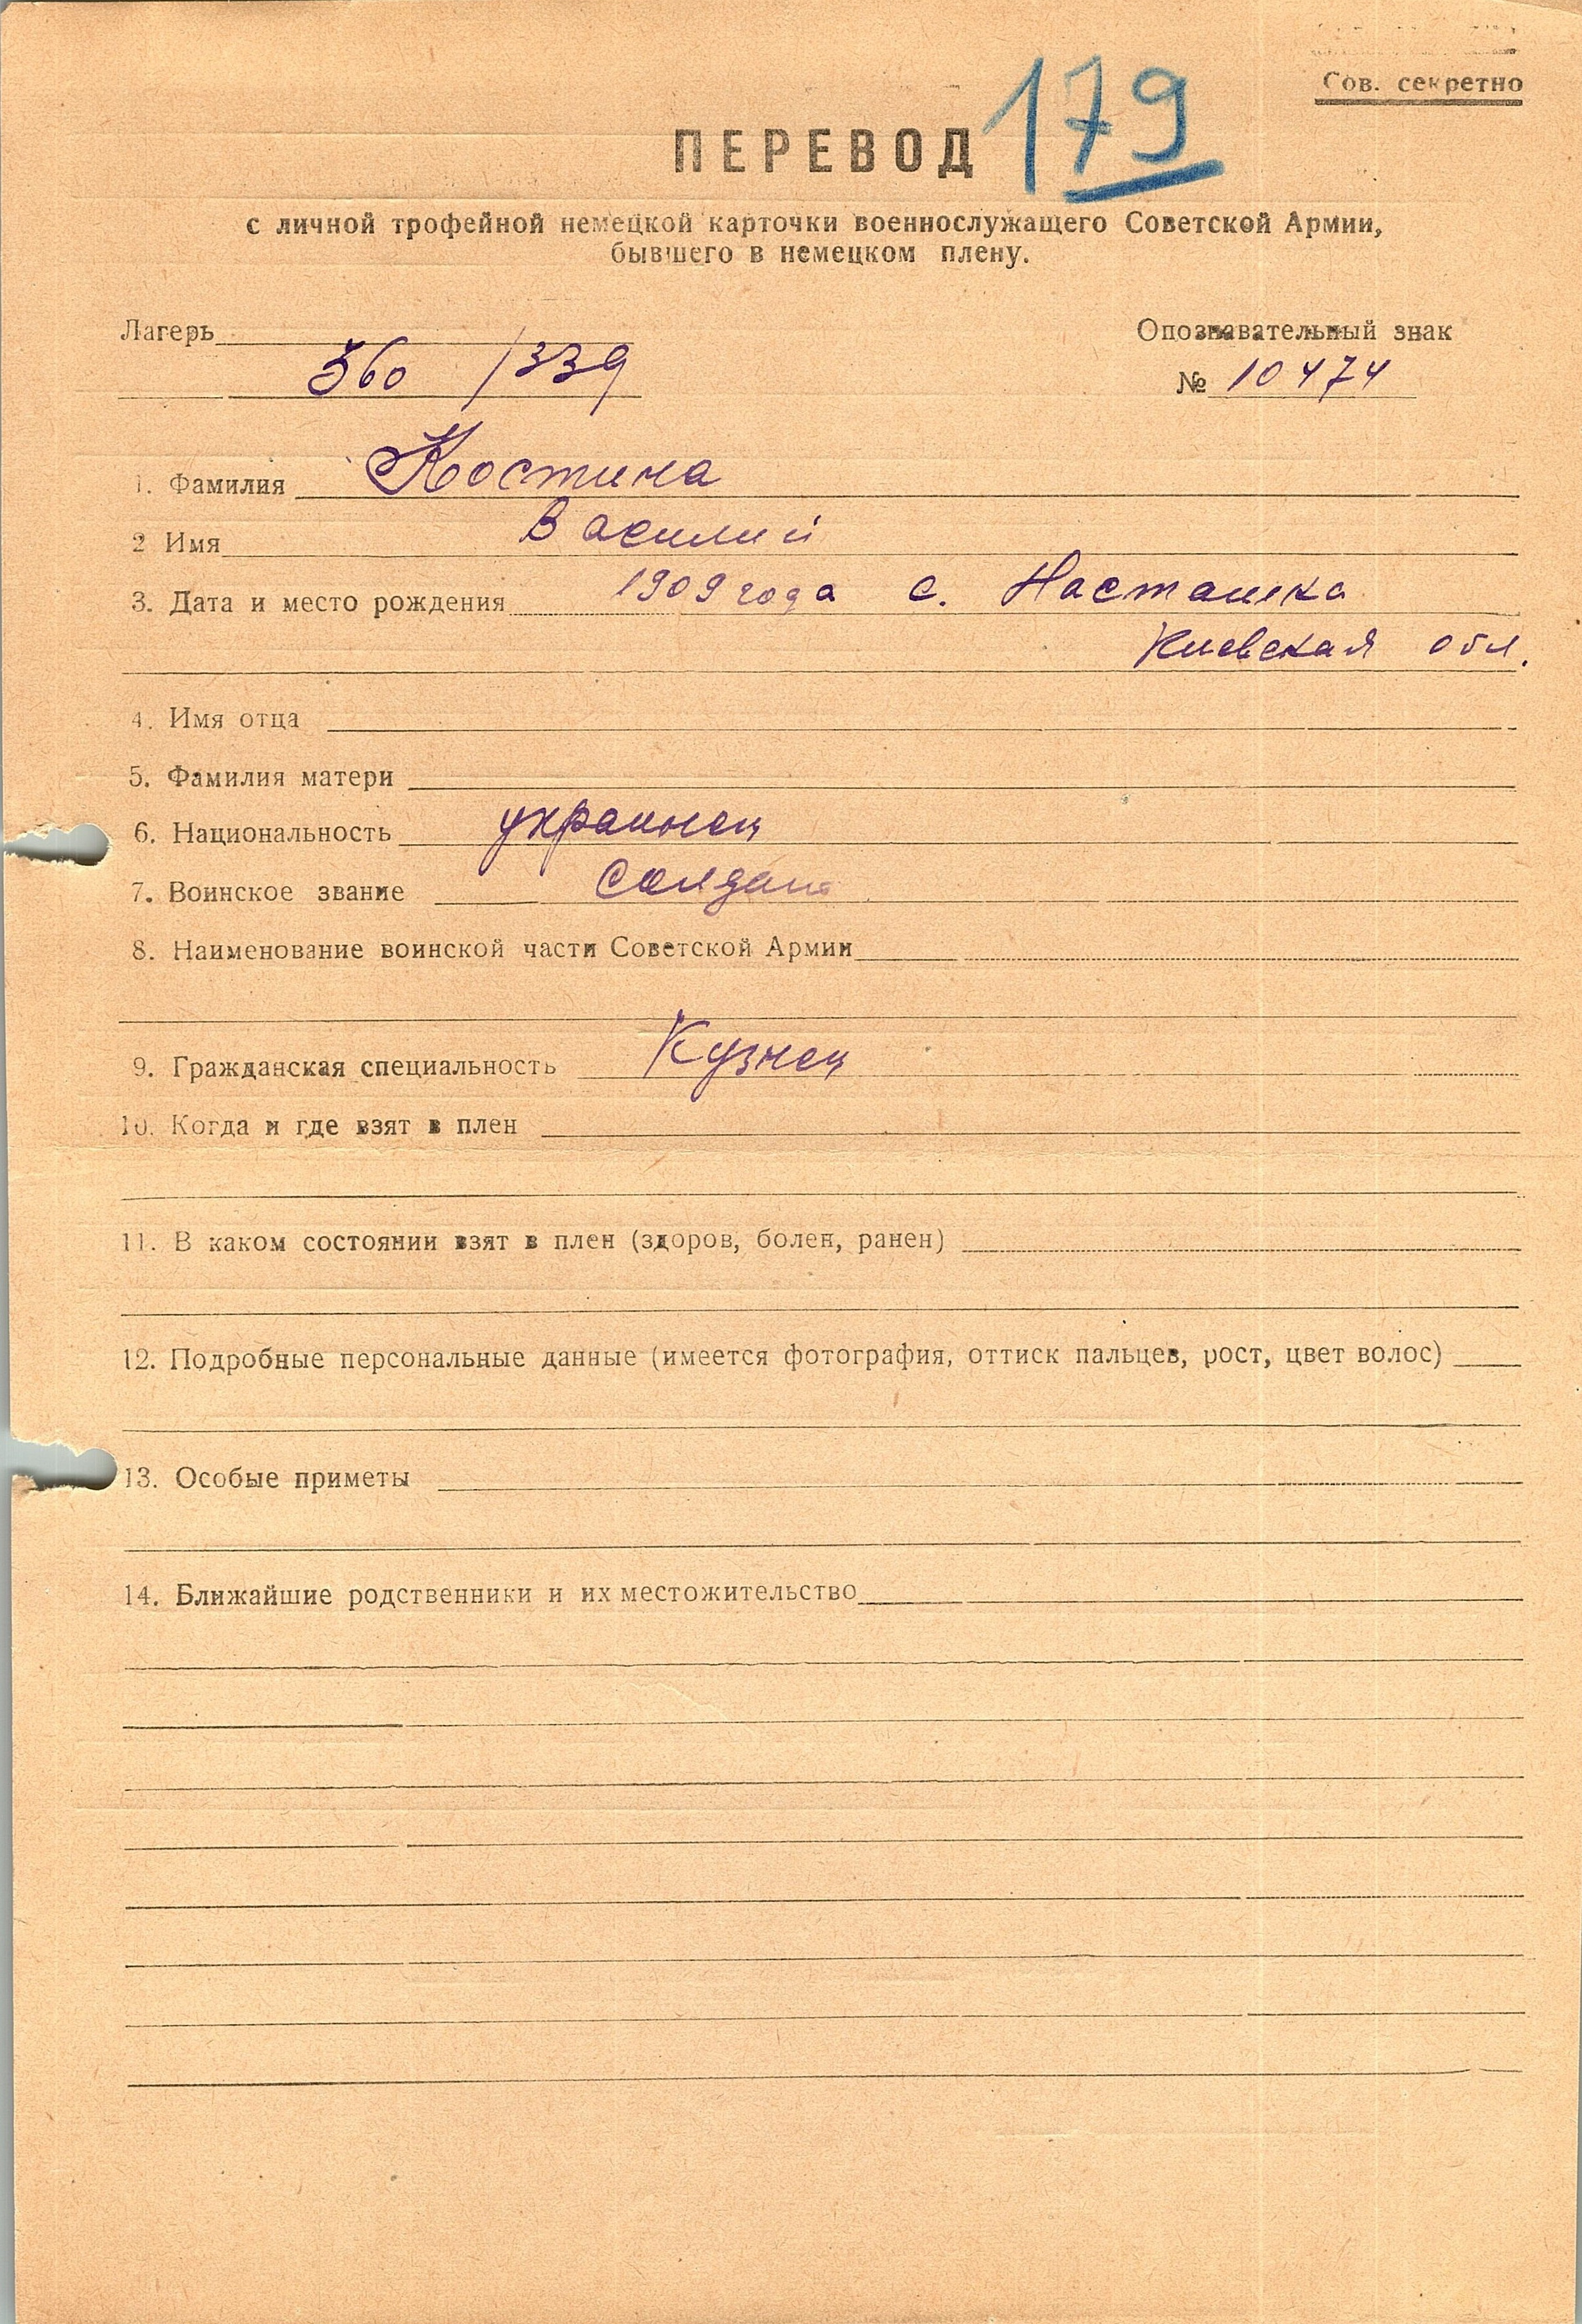 Сов. секретно
179
ПЕРЕВОД
с личной трофейной немецкой карточки военнослужащего Советской Армии,
бывшего в немецком плену.
Лагерь
360 /339
Опознавательный знак
№ 10474
1. Фамилия Костина
2 Имя Василий
3. Дата и место рождения 1909 года с. Насташка
Киевская обл.
4. Имя отца
5. Фамилия матери
6. Национальность украинец
7. Воинское звание Солдат
8. Наименование воинской части Советской Армии
9. Гражданская специальность Кузнец
10. Когда и где взят в плен
11. В каком состоянии взят в плен (здоров, болен, ранен)
12. Подробные персональные данные (имеется фотография, оттиск пальцев, рост, цвет волос)
13. Особые приметы
14. Ближайшие родственники и их местожительство